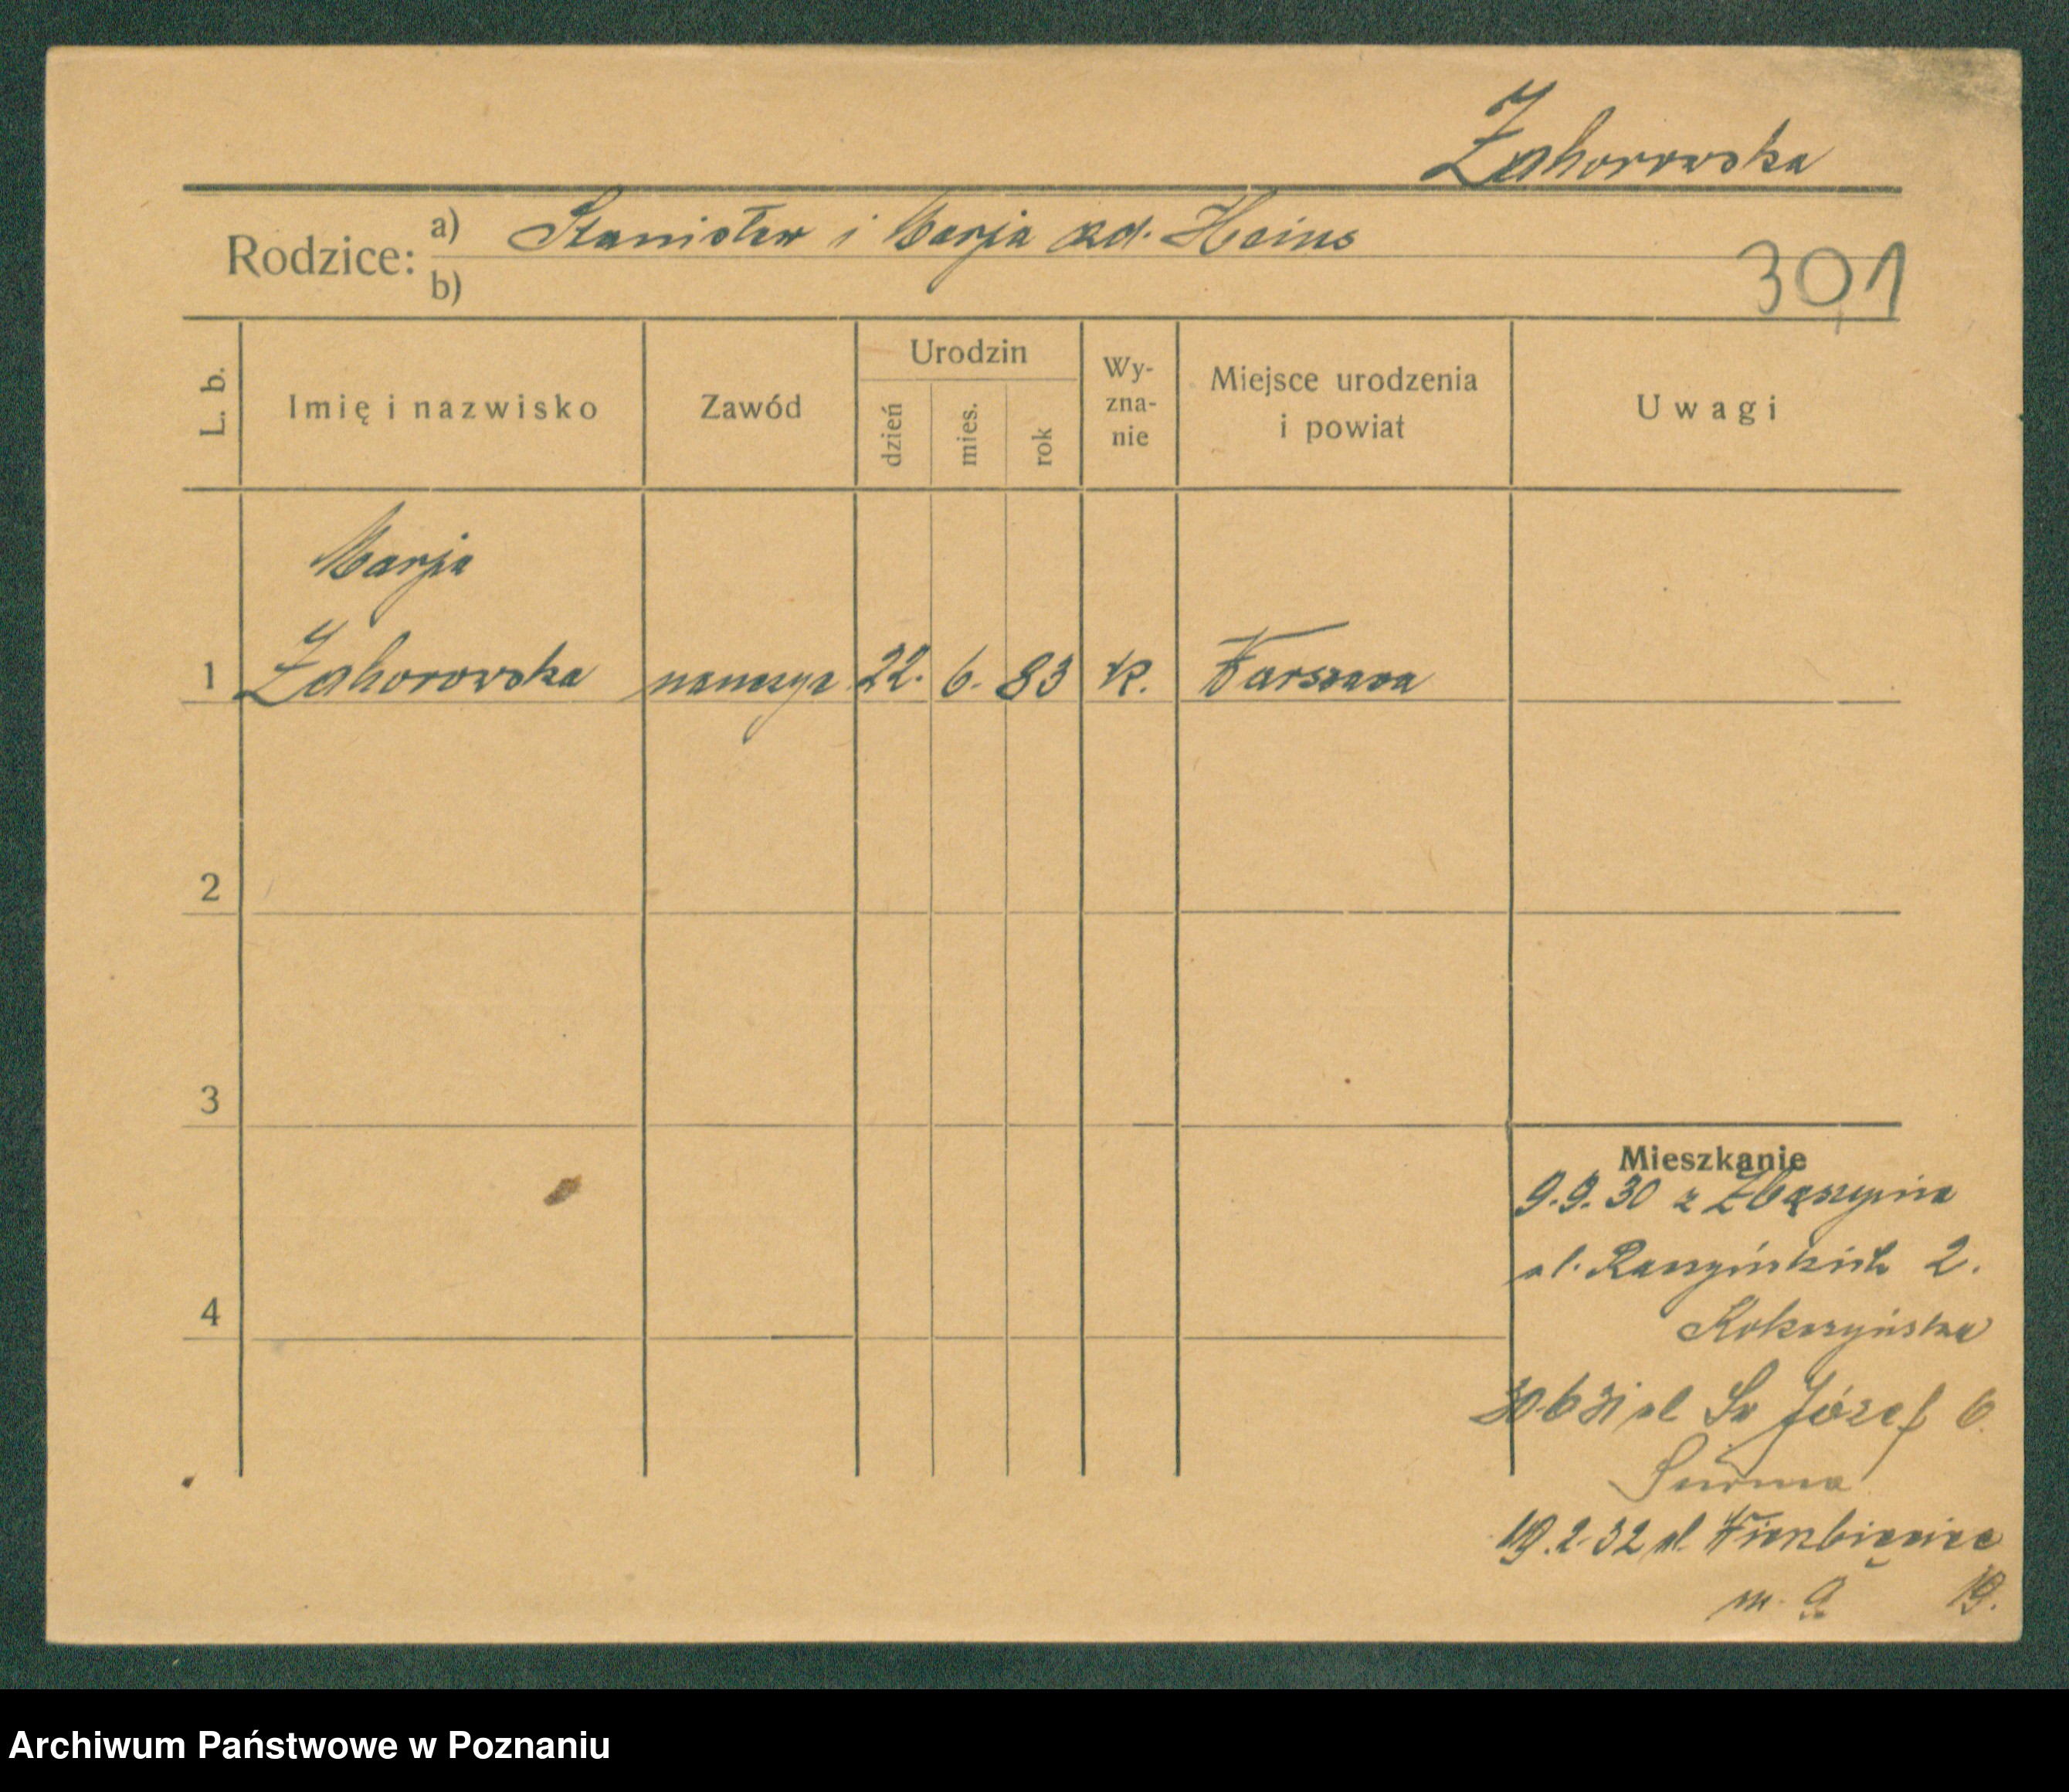 Zahorowska
Rodzice: a) Stanisław i Marja zd. Heins
b)
301
L. b.
Imię i nazwisko
Zawód
Urodzin
dzień
mies.
rok
Wy-
zna-
nie
Miejsce urodzenia
i powiat
Uwagi
Marja
1 Zahorowska 22. 6. 83 K. Warszawa
2
3
4
Mieszkanie
9.9.30 z Zbąszynia
ul. Raczyńskich 2.
30 6 31 ul Św Józef 6.
Surma
19.2.32 ul. Wierzbięcice
m. 9 19.
Archiwum Państwowe w Poznaniu